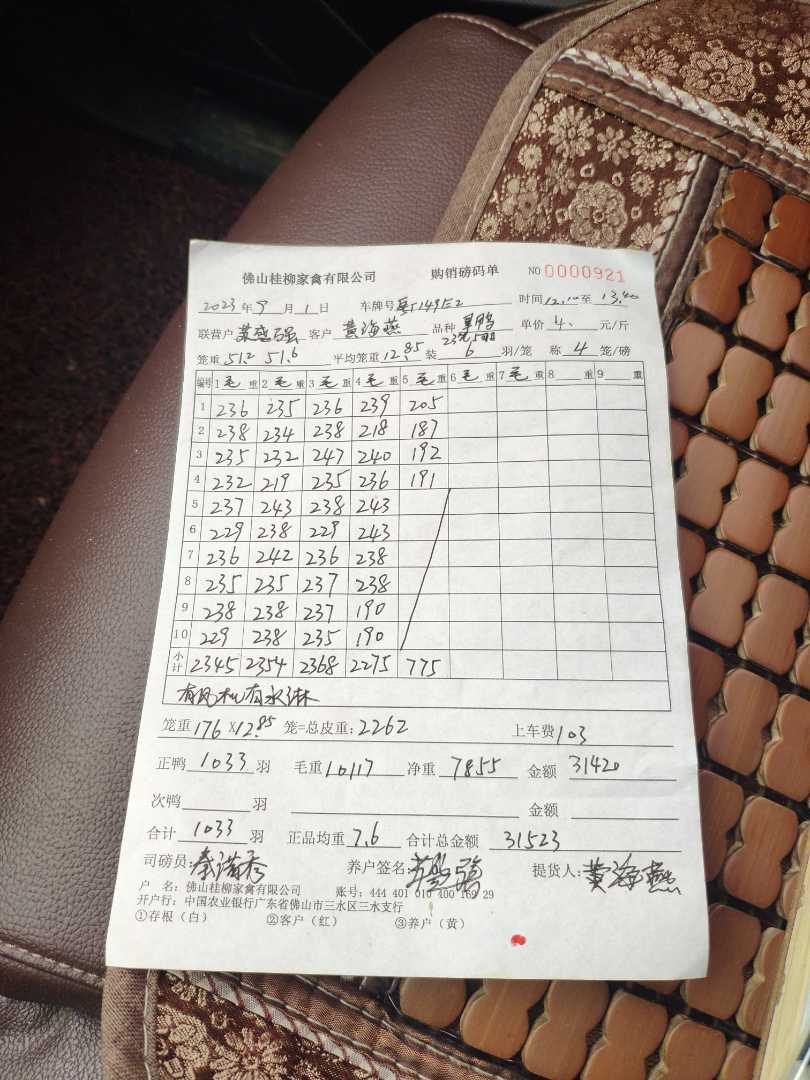 佛山桂柳家禽有限公司 购销磅码单 NO 0000921
2023年9月1日 车牌号 149E2 时间12.10至13.40
联营户 客户 黄海燕 品种 单价 4. 元/斤
笼重 51.2 51.6 平均笼重 12.85 装 6 羽/笼 称 4 笼/磅
编号 1毛重 2毛重 3毛重 4毛重 5毛重 6毛重 7毛重 8 重 9 重
1 236 235 236 239 205
2 238 234 238 218 187
3 235 232 247 240 192
4 232 219 235 236 191
5 237 243 238 243
6 229 238 229 243
7 236 242 236 238
8 235 235 237 238
9 238 238 237 190
10 229 238 235 190
小计 2345 2354 2368 2275 775
有风机有水淋
笼重176X12.85笼=总皮重:2262 上车费103
正鸭 1033 羽 毛重10117 净重 7855 金额 31420
次鸭 羽 金额
合计 1033 羽 正品均重7.6 合计总金额 31523
司磅员: 养户签名: 提货人:黄海燕
户 名:佛山桂柳家禽有限公司 账号:444 401 010 400 169 29
开户行:中国农业银行广东省佛山市三水区三水支行
①存根(白) ②客户(红) ③养户(黄)